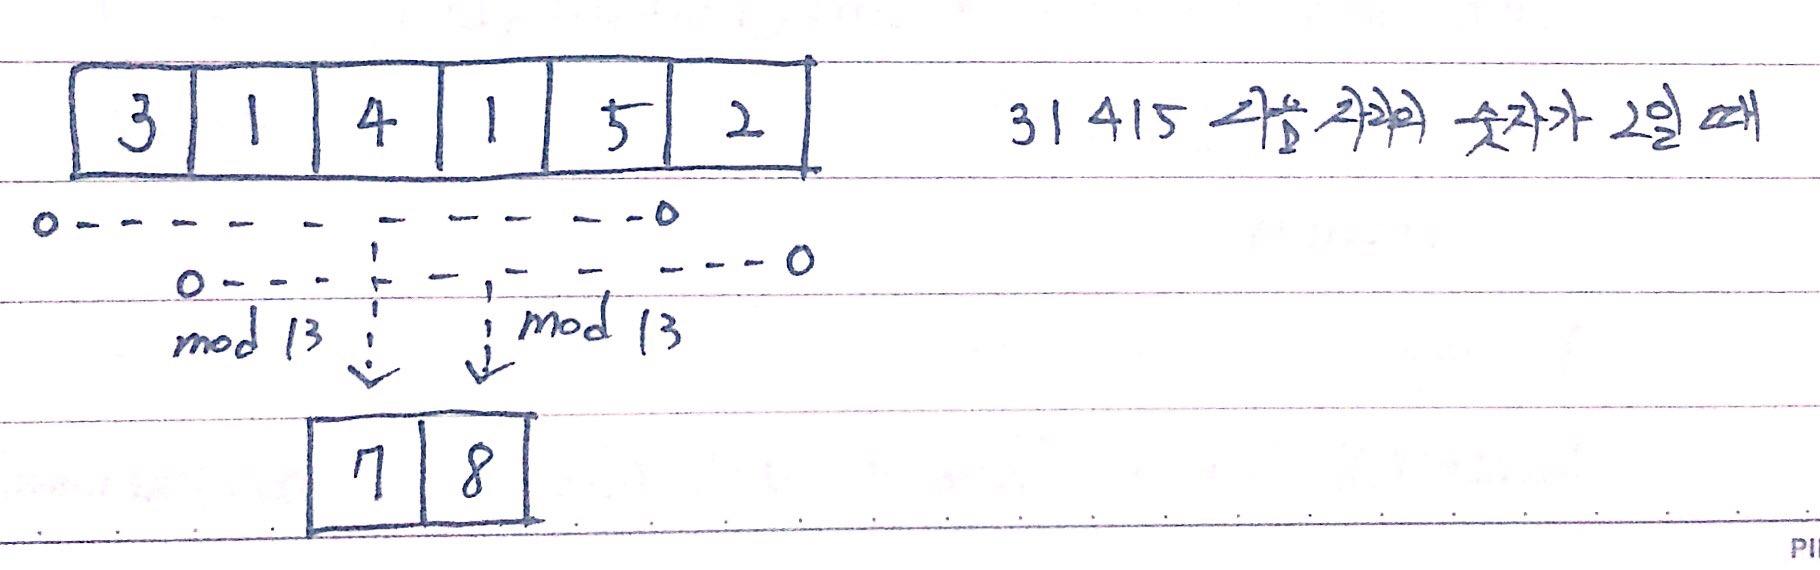 3 1 4 1 5 2
31415 다음 자리의 숫자가 2일 때
mod 13 mod 13
7 8
PI